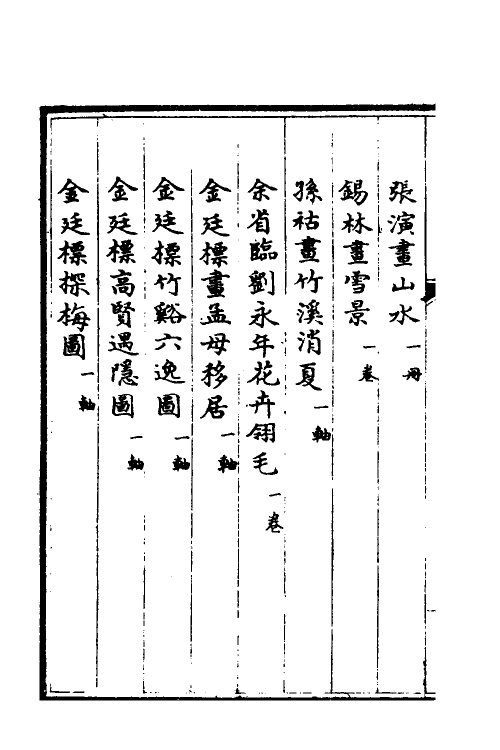 張演畫山水一冊
錫林畫雪景一卷
孫祜畫竹溪消夏一軸
余省臨劉永年花卉翎毛一卷
金廷標畫孟母移居一軸
金廷標竹谿六逸圖一軸
金廷標高賢遇隱圖一軸
金廷標探梅圖一軸